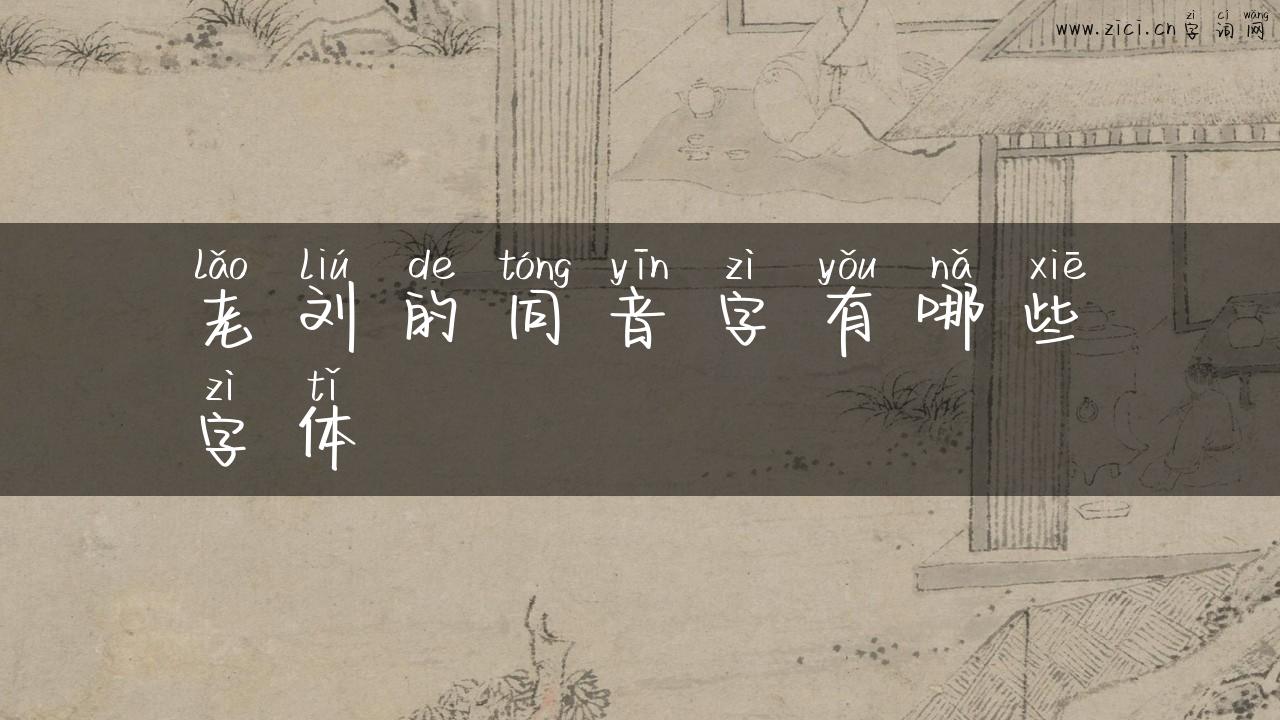 zì cí wǎng
www.zici.cn 字词网
lǎo liú de tóng yīn zì yǒu nǎ xiē
老刘的同音字有哪些
zì tǐ
字体